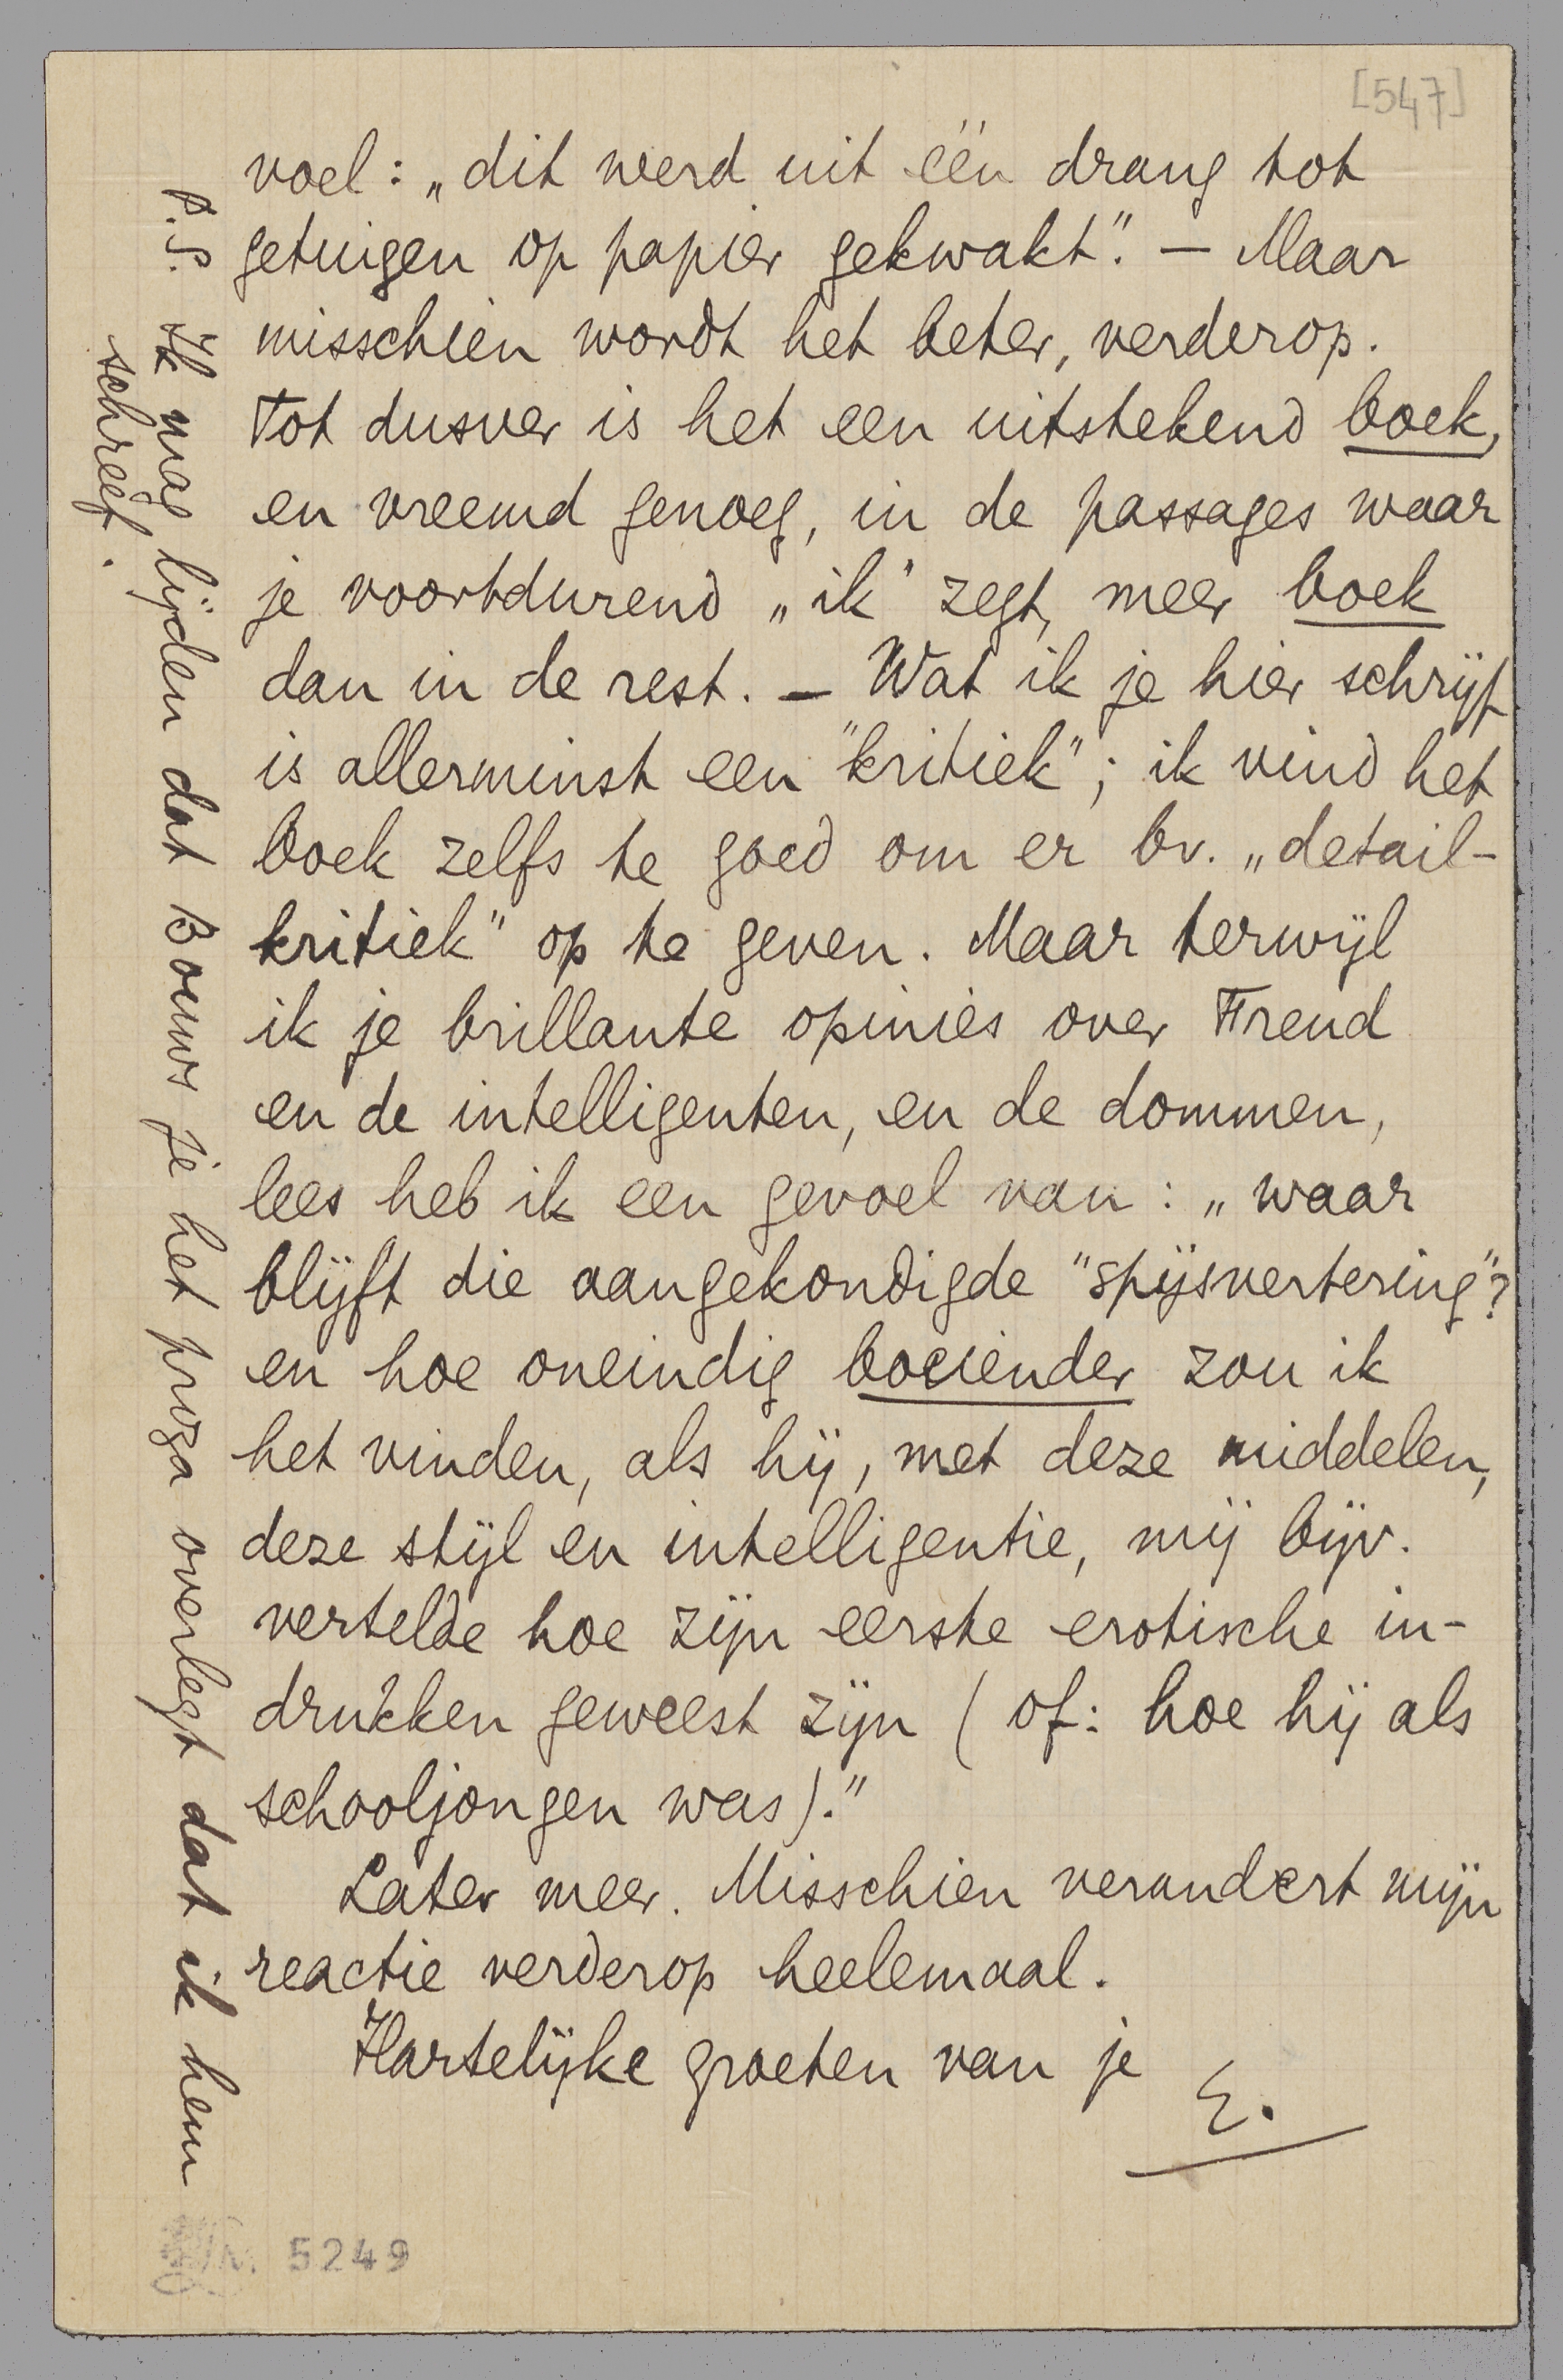 [547]
voel: „dit werd uit één drang tot
getuigen op papier gekwakt". — Maar
misschien wordt het beter, verderop.
Tot dusver is het een uitstekend boek,
en vreemd genoeg, in de passages waar
je voortdurend „ik" zegt, meer boek
dan in de rest. — Wat ik je hier schrijf
is allerminst een "kritiek"; ik vind het
boek zelfs te goed om er bv. „detail-
kritiek" op te geven. Maar terwijl
ik je brillante opinies over Freud
en de intelligenten, en de dommen,
lees heb ik een gevoel van: „waar
blijft die aangekondigde "spijsvertering"?
en hoe oneindig boeiender zou ik
het vinden, als hij, met deze middelen,
deze stijl en intelligentie, mij bijv.
vertelde hoe zijn eerste erotische in-
drukken geweest zijn (of: hoe hij als
schooljongen was)."
Later meer. Misschien verandert mijn
reactie verderop heelemaal.
Hartelijke groeten van je
E.
P.S. Ik mag lijden dat Bouws je het proza overlegt dat ik hem
schreef.
5249